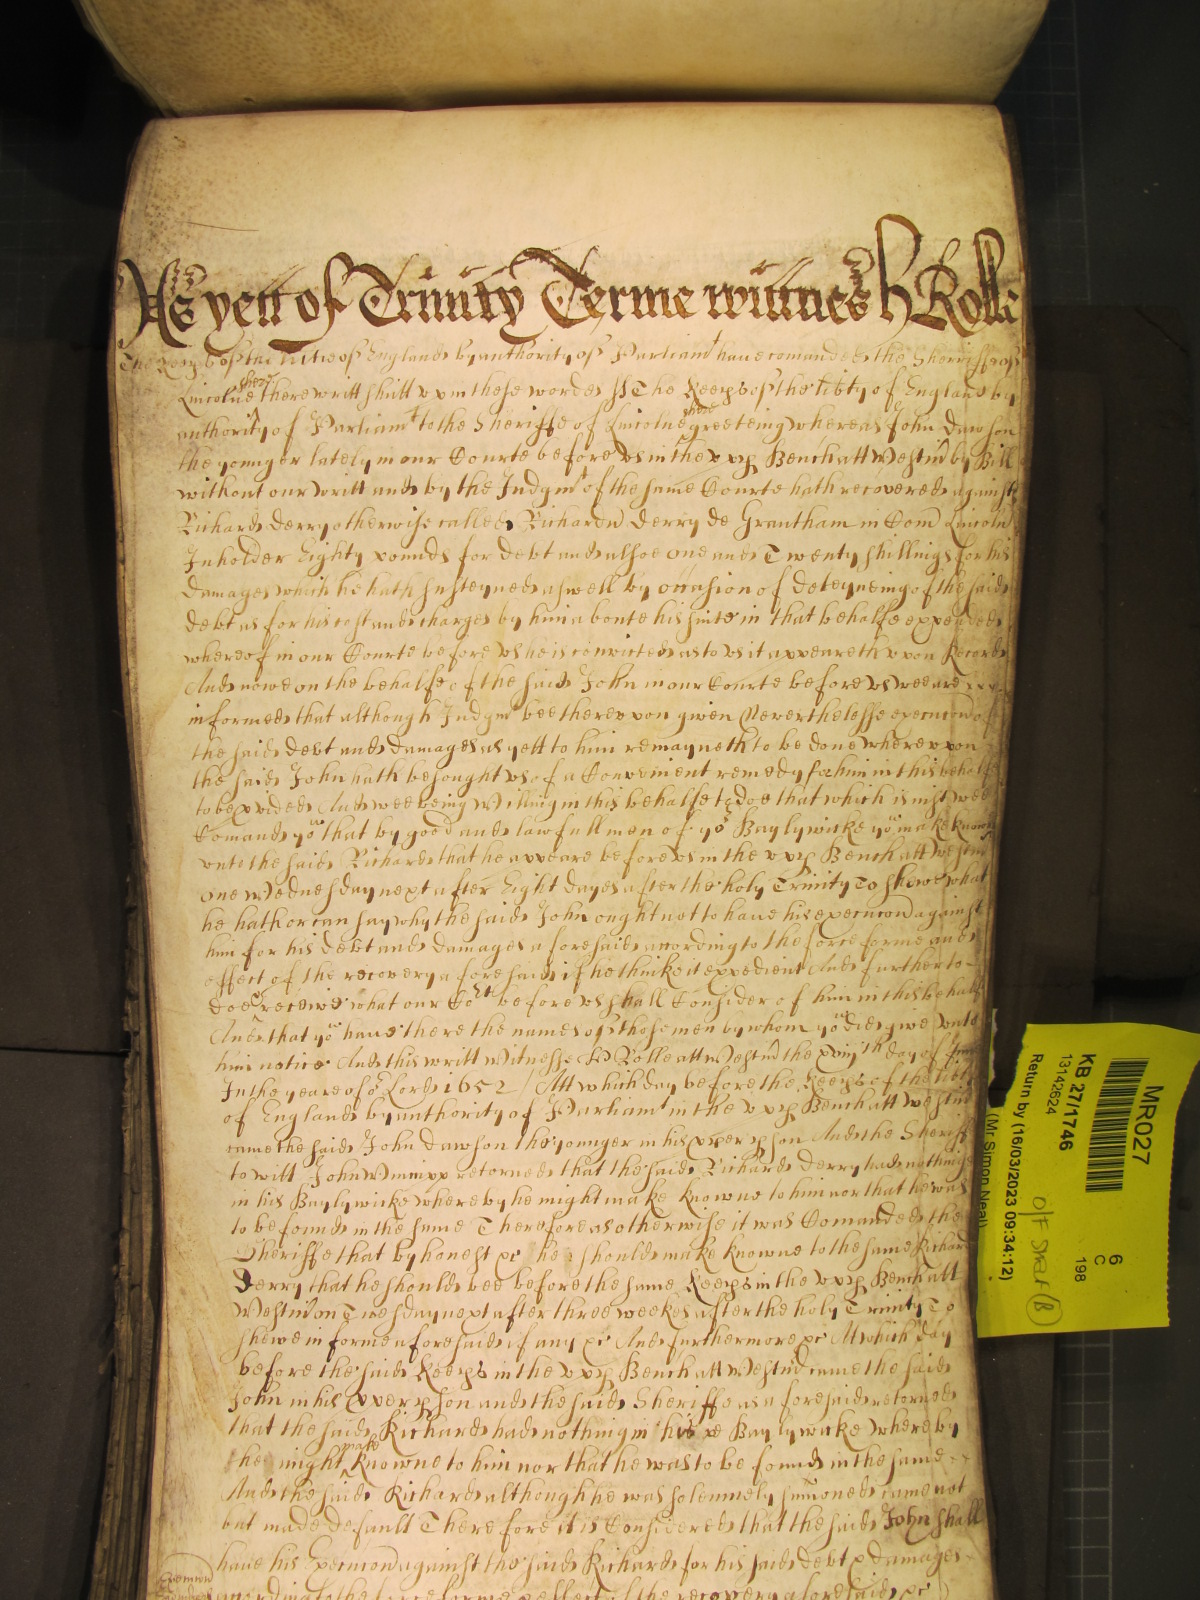 As yett of Trinity Terme wittnes H Rolle
The Keeps of the litie of England by authority of Parliamt have comanded the Sherriffe of
Lincolne shere there writt shutt upp in these wordes ss The Keeps of the libty of England by
authority of Parliamt to the Sheriffe of Lincolne shere greeteing whereas John Dawson
the younger lately in our Courte before us in the upp Bench att Westm by Bill
without our writt and by the Judgmt of the same Courte hath recovered against
Richard Derry otherwise called Richard Derry de Grantham in Com Lincoln
Inholder Eighty pounds for debt and alsoe one and Twenty shillings for his
damages which he hath susteyned aswell by occasion of deteyneing of the said
debt as for his cost and charges by him aboute his suite in that behalfe expended
whereof in our Courte before us he is convicted as to us it appeareth uppon Record
And nowe on the behalfe of the said John in our Courte before us wee are
informed that although Judgmt bee thereuppon given Neverthelesse execucion of
the said debt and damages as yett to him remayneth to be done whereuppon
the said John hath besought us of a Convenient remedy for him in this behalfe
to be pvided And wee being willing in this behalfe to doe that which is just wee
Comand you that by good and lawfull men of yor Baylywicke you make knowne
unto the said Richard that he appeare before us in the upp Bench att Westm
one Wednesday next after Eight dayes after the holy Trinity To shewe what
he hath or can say why the said John ought not to have his execucion against
him for his debt and damages aforesaid according to the force forme and
effect of the recovery aforesaid if he thinke it expedient And further to
doe & receive what our Cort before us shall Consider of him in this behalf
And that you have there the names of those men by whom you did give unto
him notice And this writt Witnesse H Rolle att Westm the xviijth day of June
In the yeare of or Lord 1652 / Att which day before the Keeps of the libty
of England by authority of Parliamt in the upp Bench att Westm
came the said John Dawson the younger in his pper pson And the Sheriff
to witt John Wmipp retorned that the said Richard Derry had nothing
in his Baylywicke whereby he might make knowne to him nor that he was
to be found in the same Therefore as otherwise it was Comanded the
Sheriffe that by honest &c he should make knowne to the same Richard
Derry that he should bee before the same Keeps in the upp Bench att
Westm on Tuesday next after three weekes after the holy Trinity To
shewe in forme aforesaid if any &c And furthermore &c Att which day
before the said Keeps in the upp Bench att Westm came the said
John in his pper pson and the said Sheriffe as aforesaid retorned
that the said Richard had nothing in his &c Baylywicke whereby
he might make knowne to him nor that he was to be found in the same
And the said Richard although he was solemnely sumoned came not
but made default Therefore it is Considered that the said John shall
have his Execucion against the said Richard for his said debt & damages
according to the force forme & effect of the recovery aforesaid &c
MR027
KB 27/1746
13142624
Return by (16/03/2023 09:34:12)
(Mr Simon Neal)
6
C
198
O/F Shelf (B)